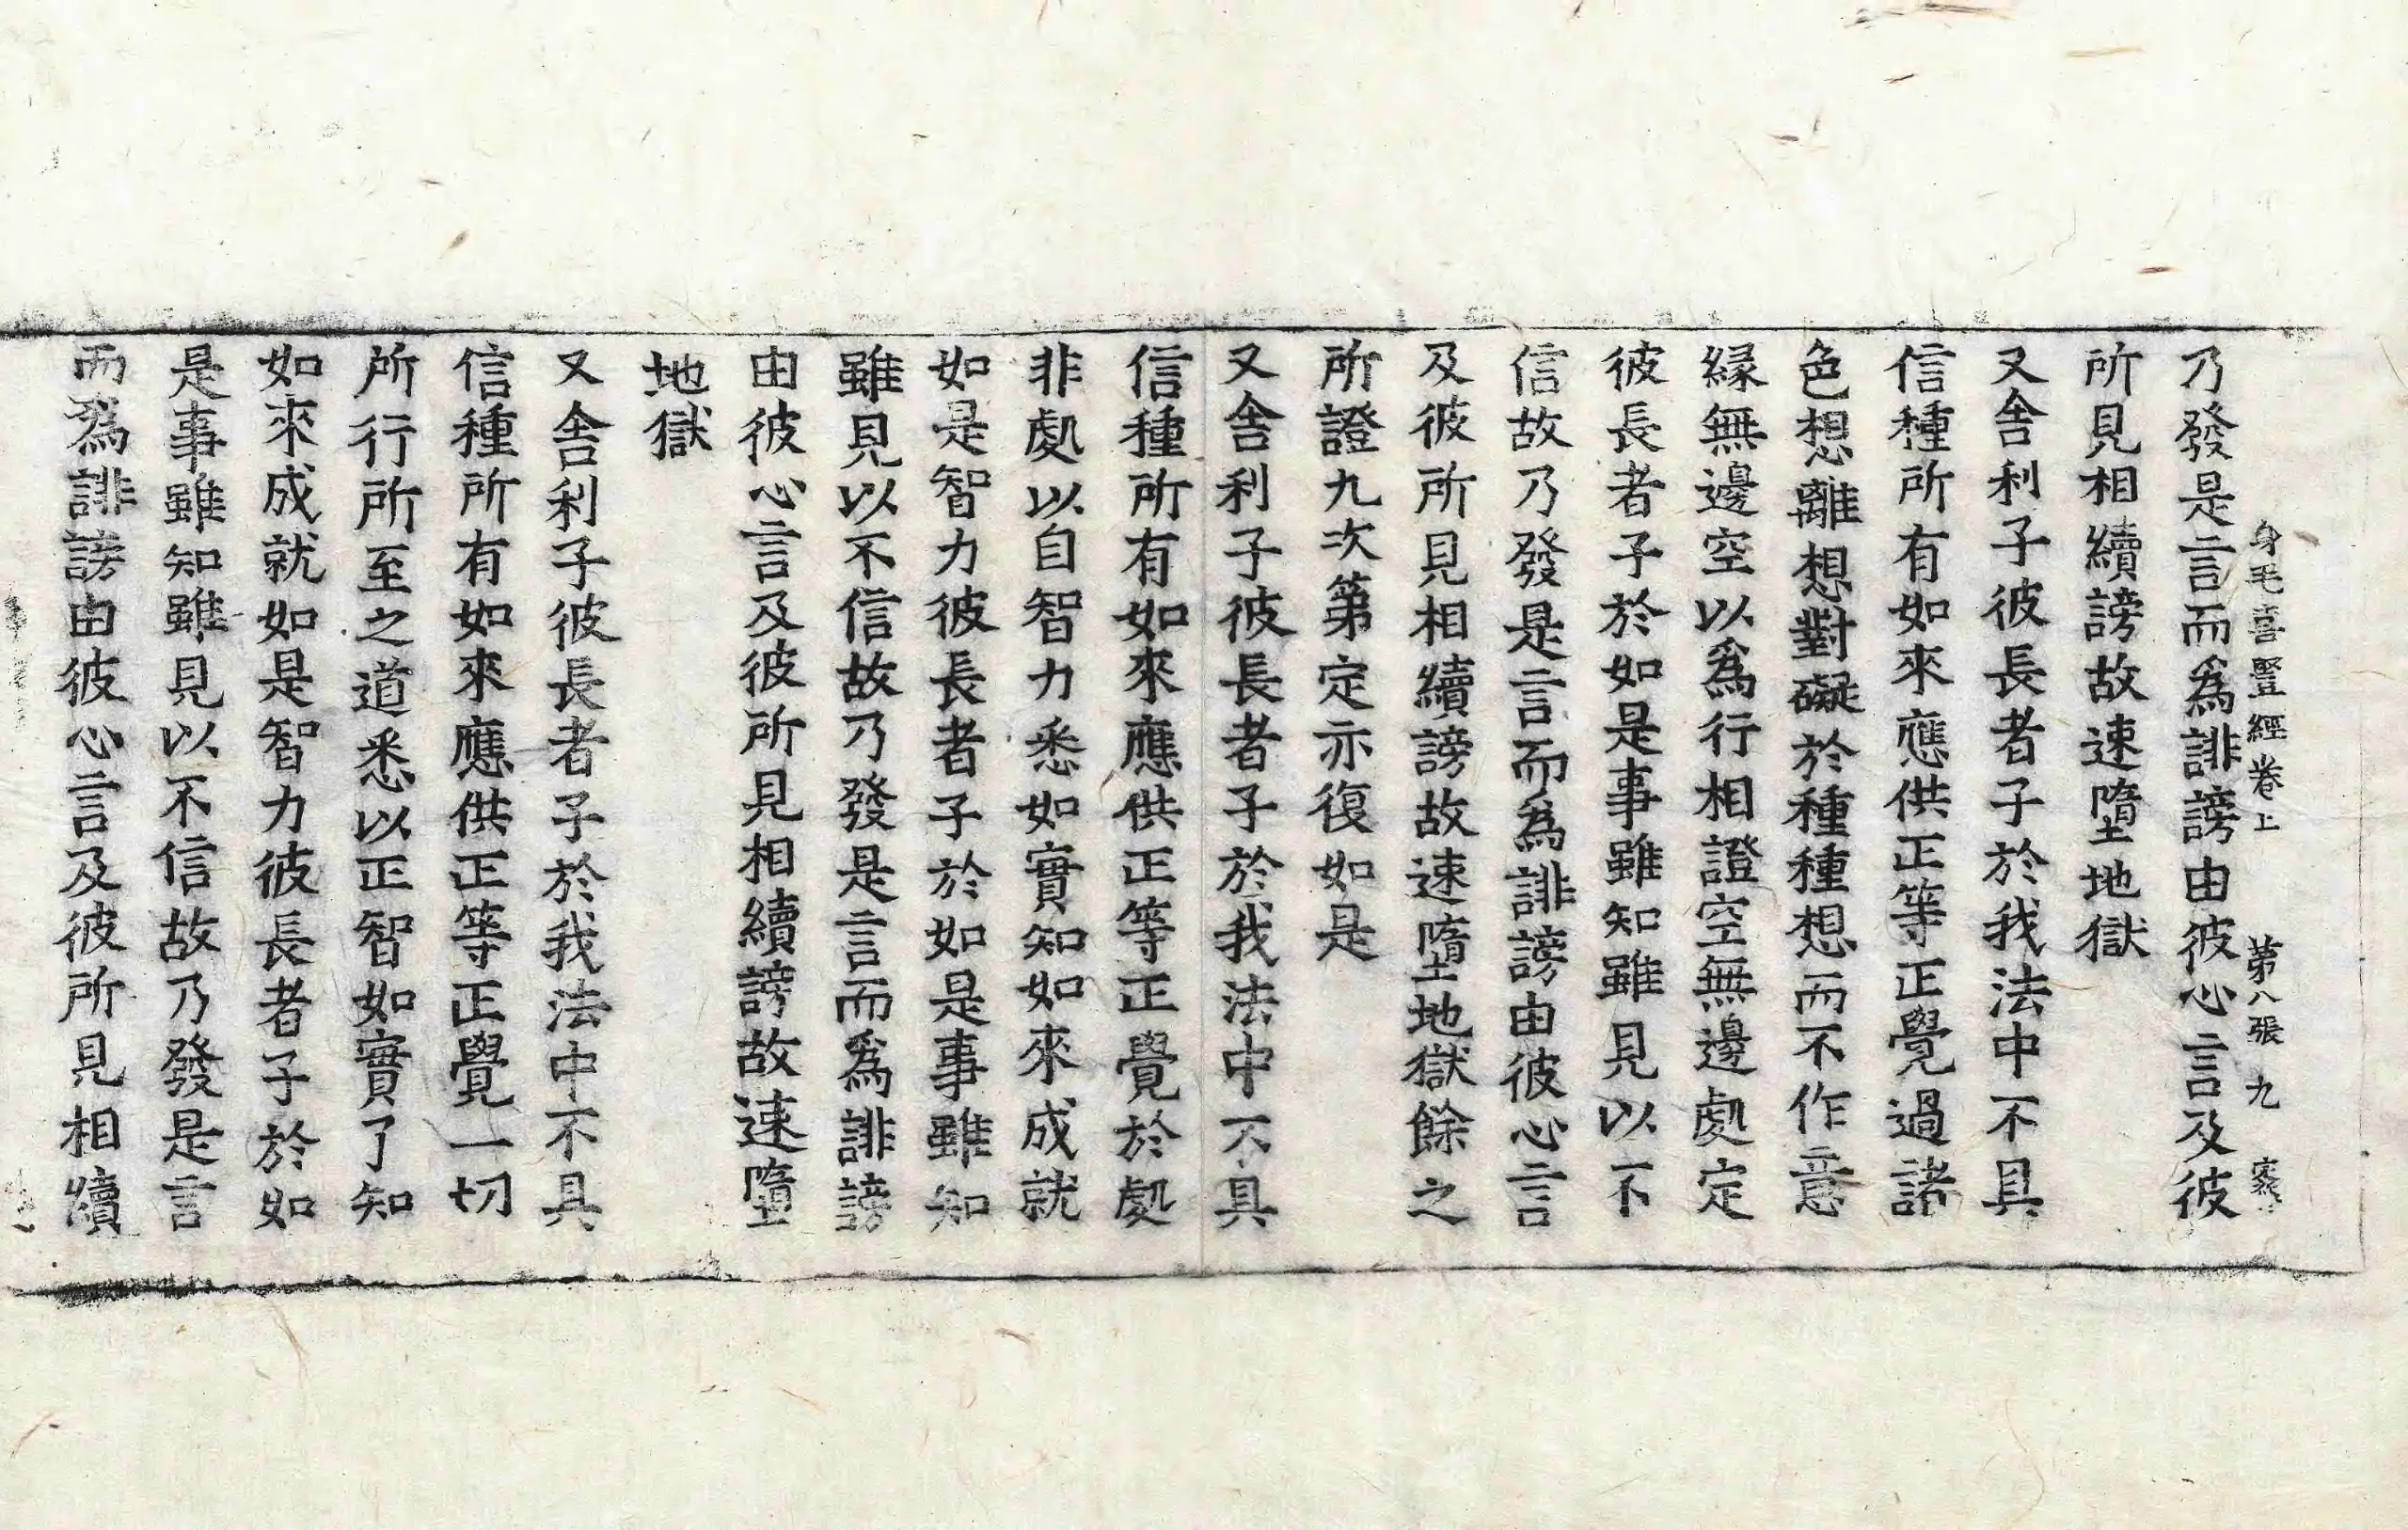 身毛喜豎經卷上 第八張 九 寒
乃發是言而爲誹謗由彼心言及彼
所見相續謗故速墮地獄
又舍利子彼長者子於我法中不具
信種所有如來應供正等正覺過諸
色想離想對礙於種種想而不作意
緣無邊空以爲行相證空無邊處定
彼長者子於如是事雖知雖見以不
信故乃發是言而爲誹謗由彼心言
及彼所見相續謗故速墮地獄餘之
所證九次第定亦復如是
又舍利子彼長者子於我法中不具
信種所有如來應供正等正覺於處
非處以自智力悉如實知如來成就
如是智力彼長者子於如是事雖知
雖見以不信故乃發是言而爲誹謗
由彼心言及彼所見相續謗故速墮
地獄
又舍利子彼長者子於我法中不具
信種所有如來應供正等正覺一切
所行所至之道悉以正智如實了知
如來成就如是智力彼長者子於如
是事雖知雖見以不信故乃發是言
而爲誹謗由彼心言及彼所見相續